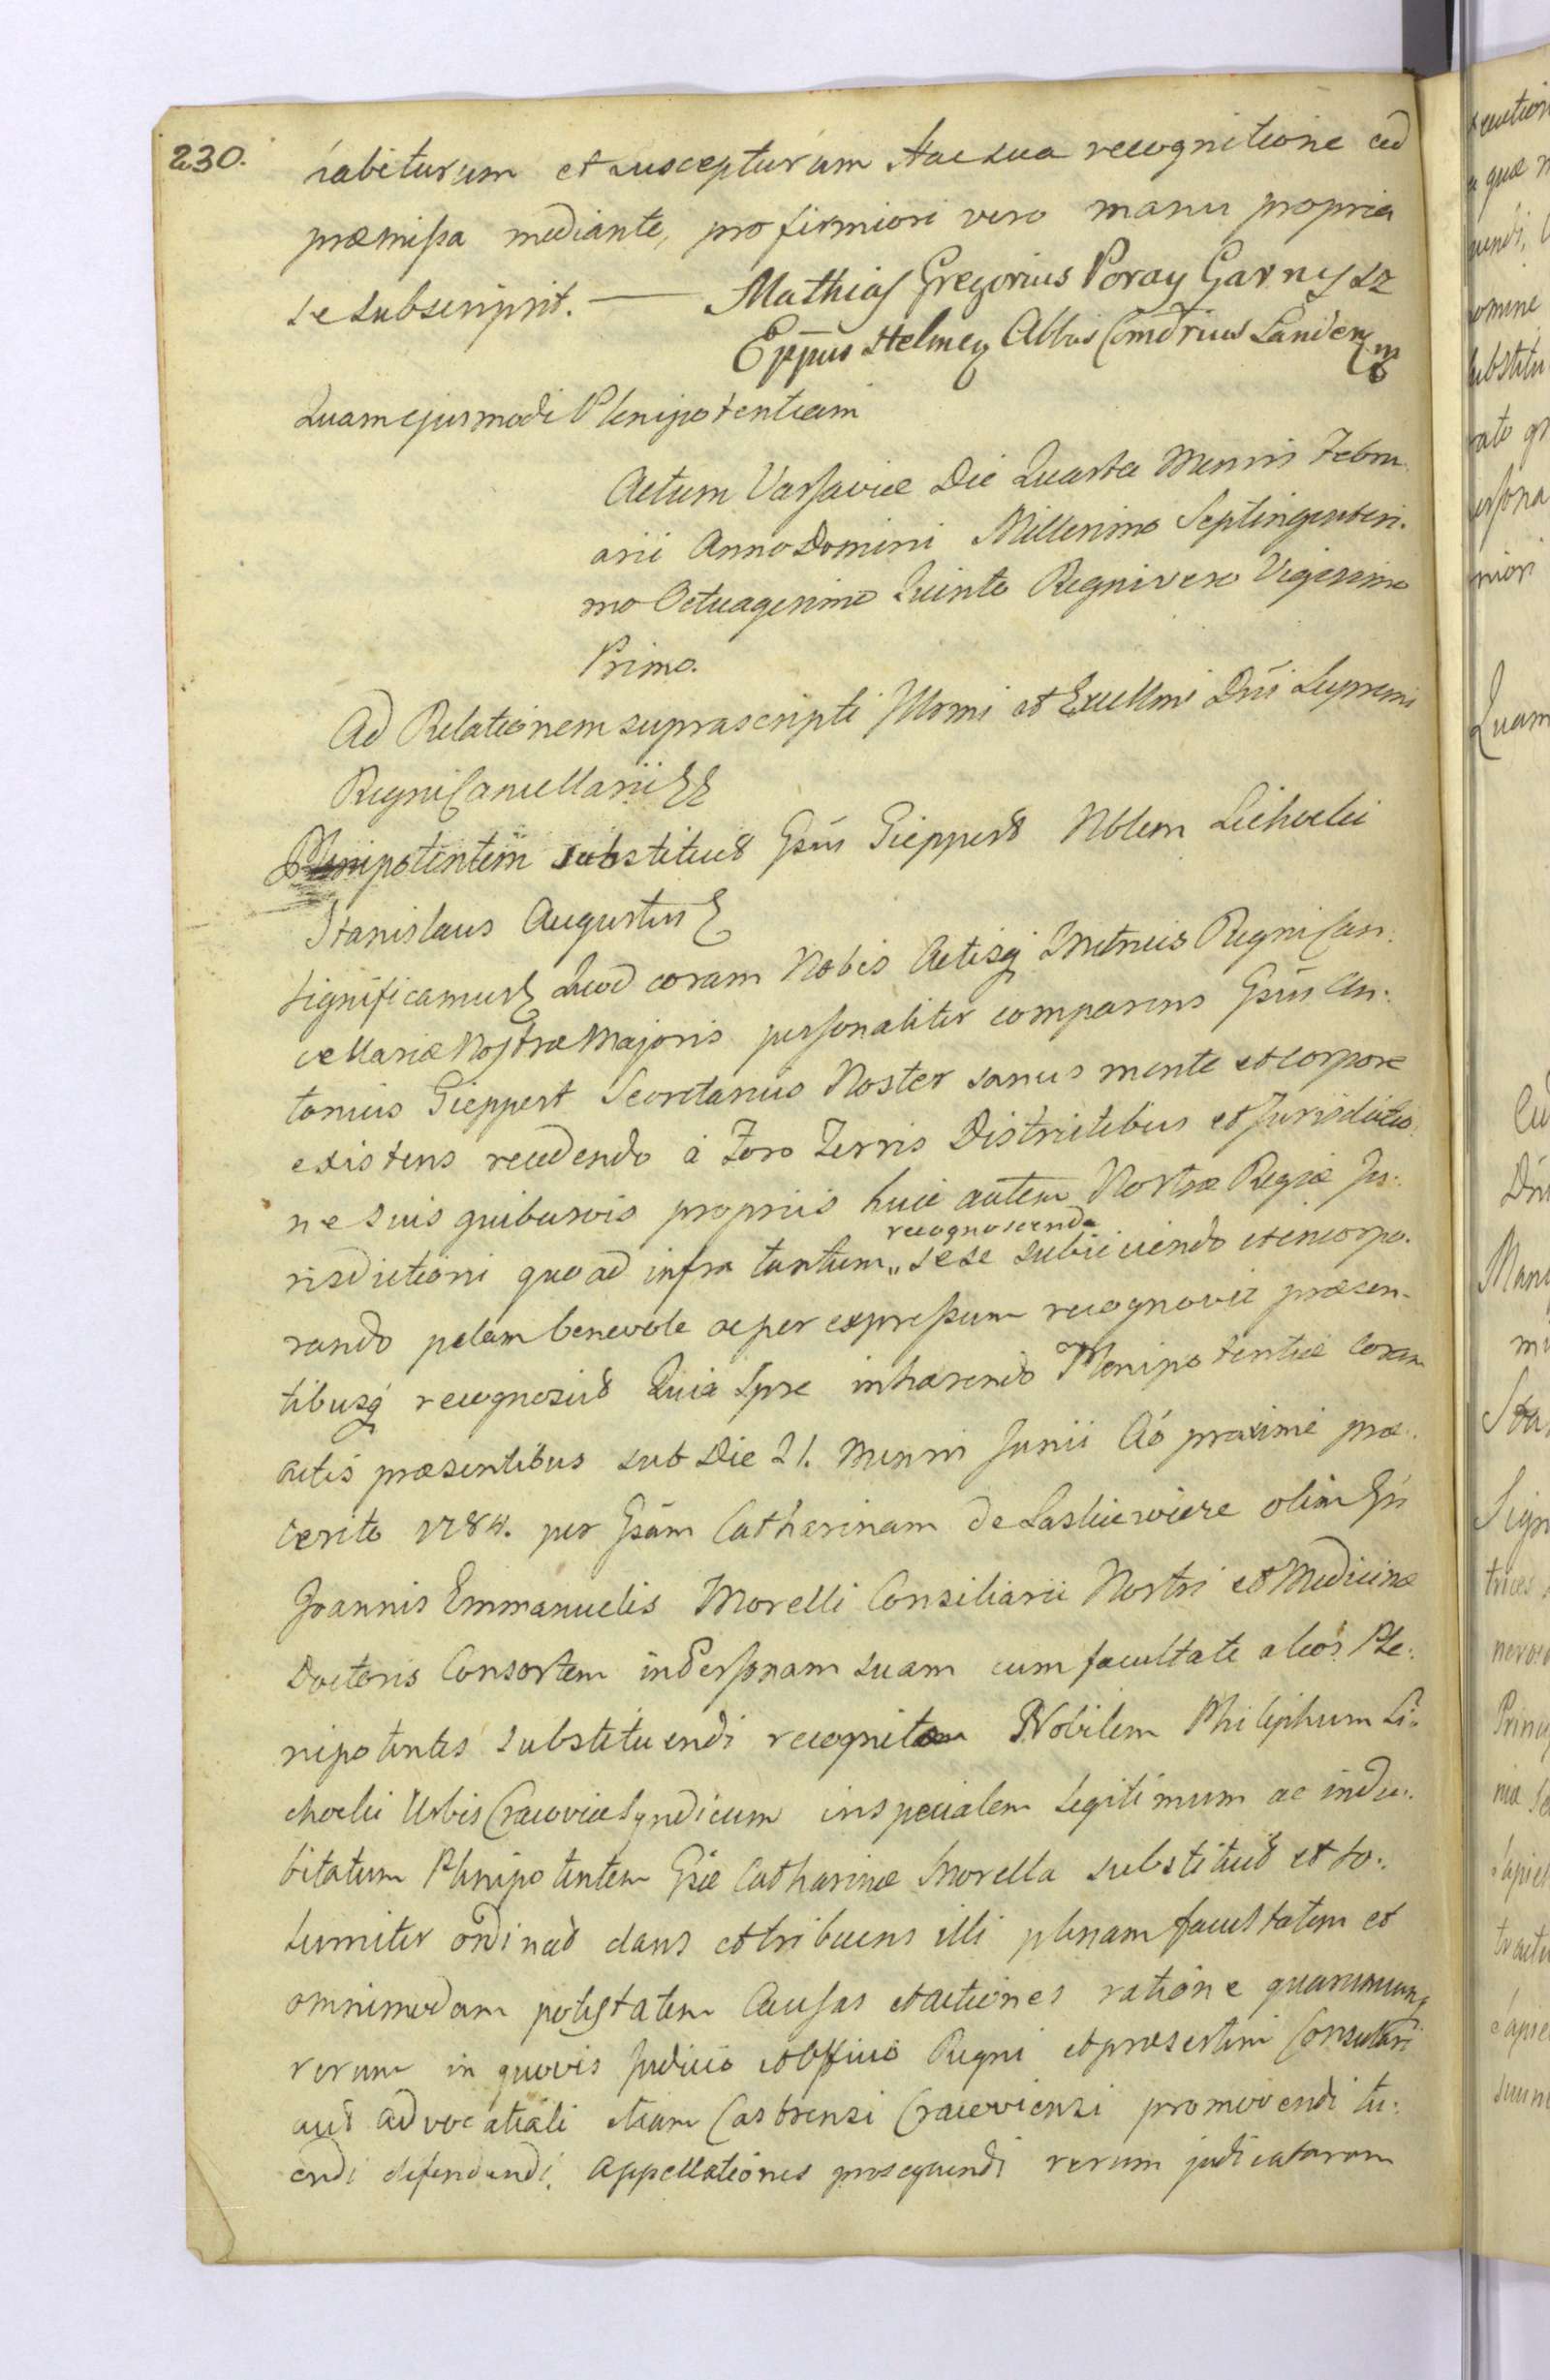 230.
habiturum et suscepturum hac sua recognitione ad
præmissa mediante, pro firmiori vero manu propria
se subscripsit. — Mathias Gregorius Poray Garnysz
Eppus Helmen Abbas Comdrius Landen mp
Quam ejusmodi Plenipotentiam
Actum Varsaviæ Die Quarta Mensis Febru
arii Anno Domini Millesimo Septingentesi.
mo Octuagesimo Quinto Regni vero Vigesimo
Primo.
Ad Relationem suprascripti Illmi et Excellmi Dni Supremi
Regni Cancellarii
Plenipotentem substituit Gsus Gieppert Nblem Lichocki
Stanislaus Augustus
Significamus Quod coram Nobis Actisq Metrices Regni Can:
cellariæ Nostræ Majoris personaliter comparens Gsus An:
tonius Gieppert Secretarius Noster sanus mente et corpore
existens recedendo à Foro Terris Districtibus et Jurisdictio
ne suis quibusvis propriis huic autem Nostræ Regiæ Ju:
recognoscenda
risdictioni quo ad infra tantum „ sese subiiciendo et incorpo.
rando palam benevole ac per expressum recognovit præsen-
tibusq recognoscit Quia Ipse inhærendo Plenipotentiæ coram
actis præsentibus sub Die 21. Mensis Junii Ao proxime præ
terito 1784. per Gsam Catharinam de Laskiewicze olim Gsi
Joannis Emmanuelis Morelli Consiliarii Nostri et Medicinæ
Doctoris Consortem in Personam suam cum facultate alios Ple:
nipotentes substituendi recognitæ Nobilem Philiphum Li:
chocki Urbis Cracoviæ Syndicum in specialem legitimum ac indu:
bitatum Plenipotentem Gsæ Catharinæ Morella substituit et so:
lemniter ordinat dans et tribuens illi plenam facultatem et
omnimodam potestatem Causas et actiones ratione quarumcunq
rerum in quovis Judicio et Officio Regni et præsertim Consulari
aut advocatiali etiam Castrensi Cracoviensi promovendi tu:
endi defendendi, appellationes prosequendi rerum judicatarum